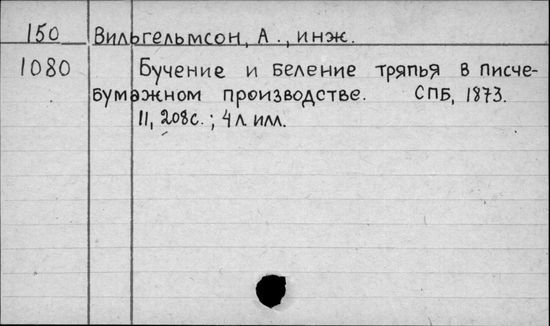 150 Вильгельмсон, А., инж.
1080 Бучение и беление тряпья в писче-
бумажном производстве. СПБ, 1873.
II, 208с.; 4л. илл.